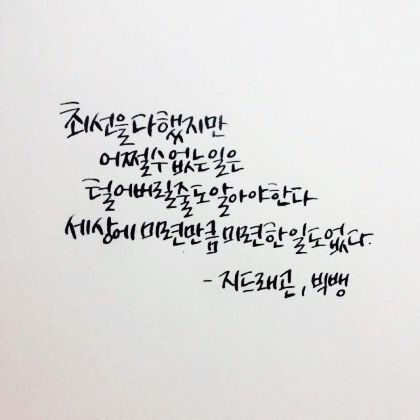 최선을다했지만
어쩔수없는일은
털어버릴줄도알아야한다
세상에 미련만큼 미련한 일도 없다.
- 지드래곤, 빅뱅